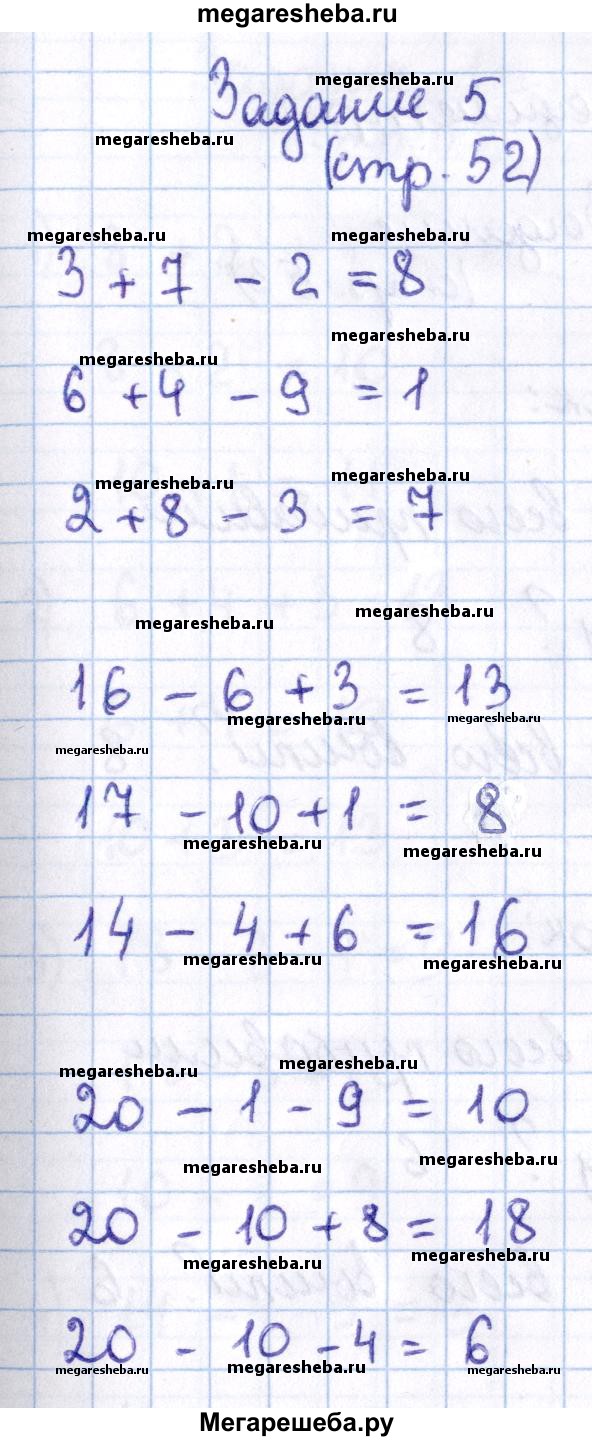 megaresheba.ru
megaresheba.ru
Задание 5
megaresheba.ru
(стр. 52)
megaresheba.ru megaresheba.ru
3 + 7 - 2 = 8
megaresheba.ru
megaresheba.ru
6 + 4 - 9 = 1
megaresheba.ru
megaresheba.ru
2 + 8 - 3 = 7
megaresheba.ru
megaresheba.ru
16 - 6 + 3 = 13
megaresheba.ru megaresheba.ru
megaresheba.ru
17 - 10 + 1 = 8
megaresheba.ru
megaresheba.ru
14 - 4 + 6 = 16
megaresheba.ru megaresheba.ru
megaresheba.ru
megaresheba.ru
20 - 1 - 9 = 10
megaresheba.ru megaresheba.ru
20 - 10 + 8 = 18
megaresheba.ru megaresheba.ru
20 - 10 - 4 = 6
megaresheba.ru megaresheba.ru megaresheba.ru
Мегарешеба.ру